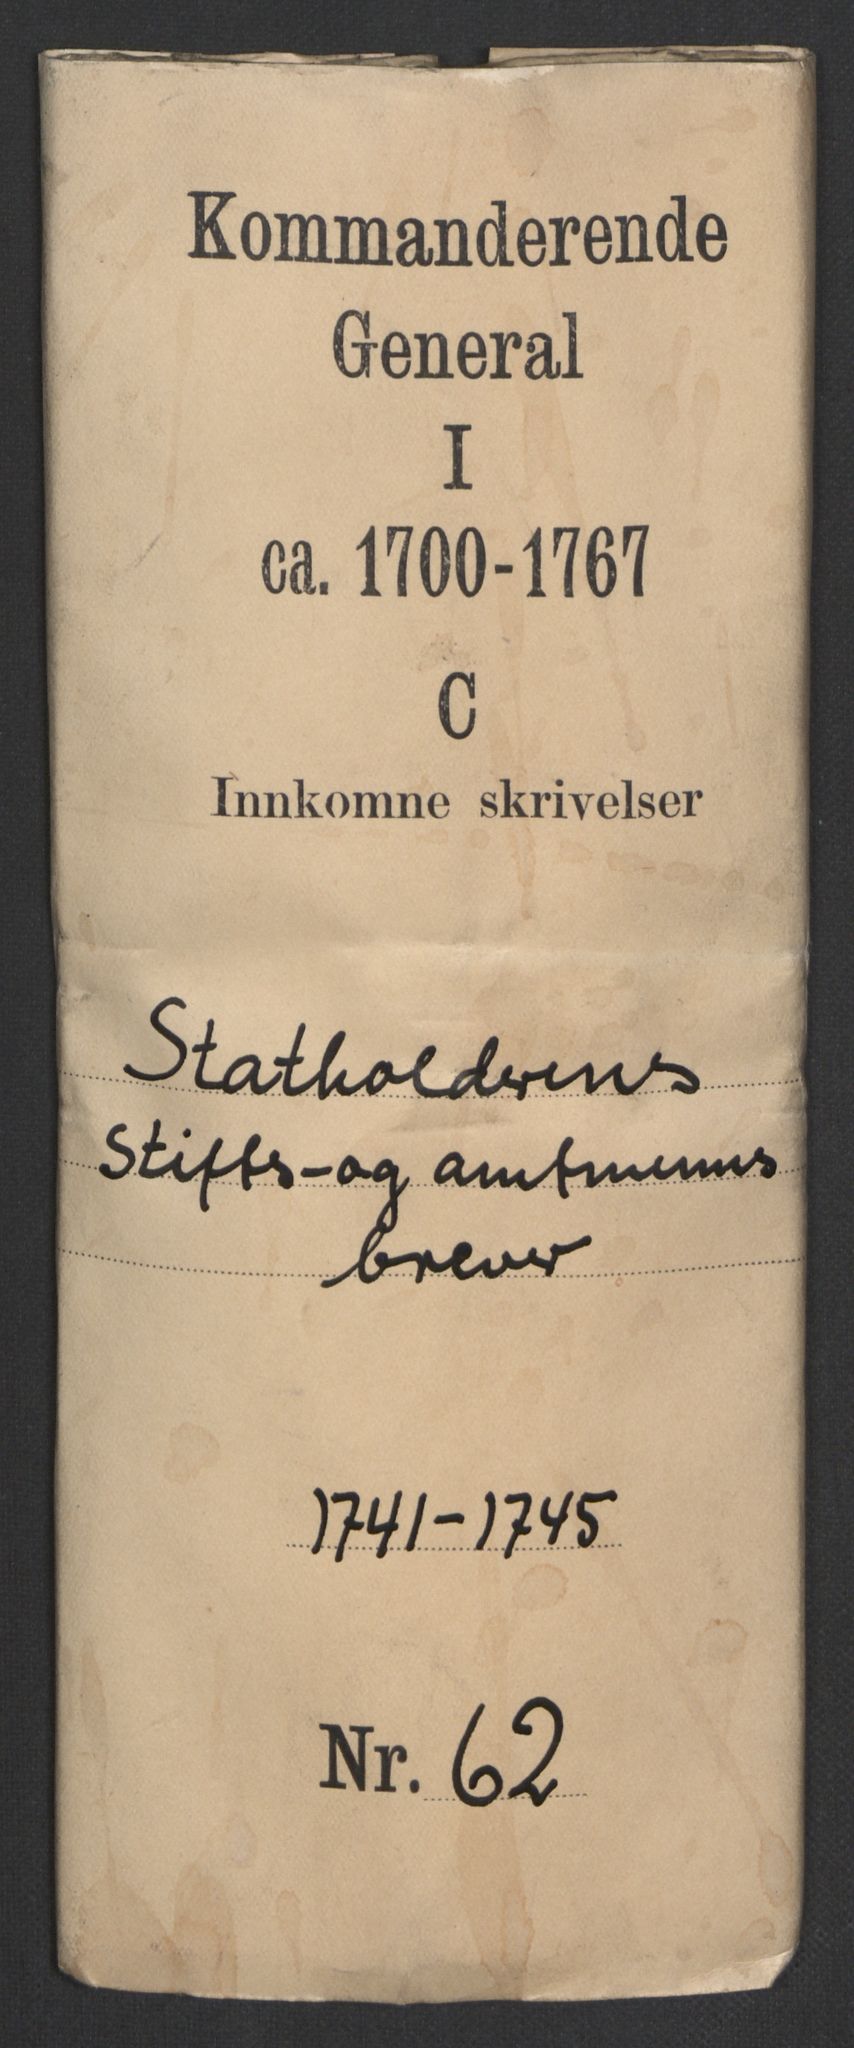 Kommanderende
General
I
ca. 1700-1767
C
Innkomne skrivelser
Statholderens
Stifts- og amtmenns
brever
1741-1745
Nr. 62